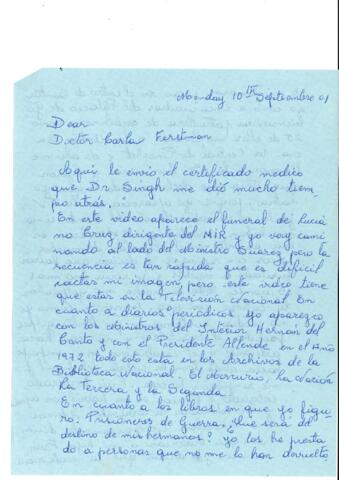 Monday 10th Septiembre 01
Dear
Doctor Carla Ferstman
Aqui le envio el certificado medico
que Dr. Singh me dió mucho tiem-
po atrás.
En este video aparece el funeral de Lucia
no Cruz dirigente del MIR y yo voy cami
nando al lado del Ministro Suárez pero la
secuencia es tan rápida que es dificil
captar mi imagen, pero este video tiene
que estar en la Televisión Nacional. En
cuanto a diarios periodicos yo aparezco
con los Ministros del Interior Hernán del
Canto y con el Presidente Allende en el Año
1972 todo esto esta en los Archivos de la
Biblioteca Nacional. El Mercurio, La Nación
La Tercera y la Segunda
En cuanto a los libros en que yo figu
ro. Prisioneros de Guerra, Que será del
destino de mis hermanos? Yo los he presta
do a personas que no me lo han devuelto